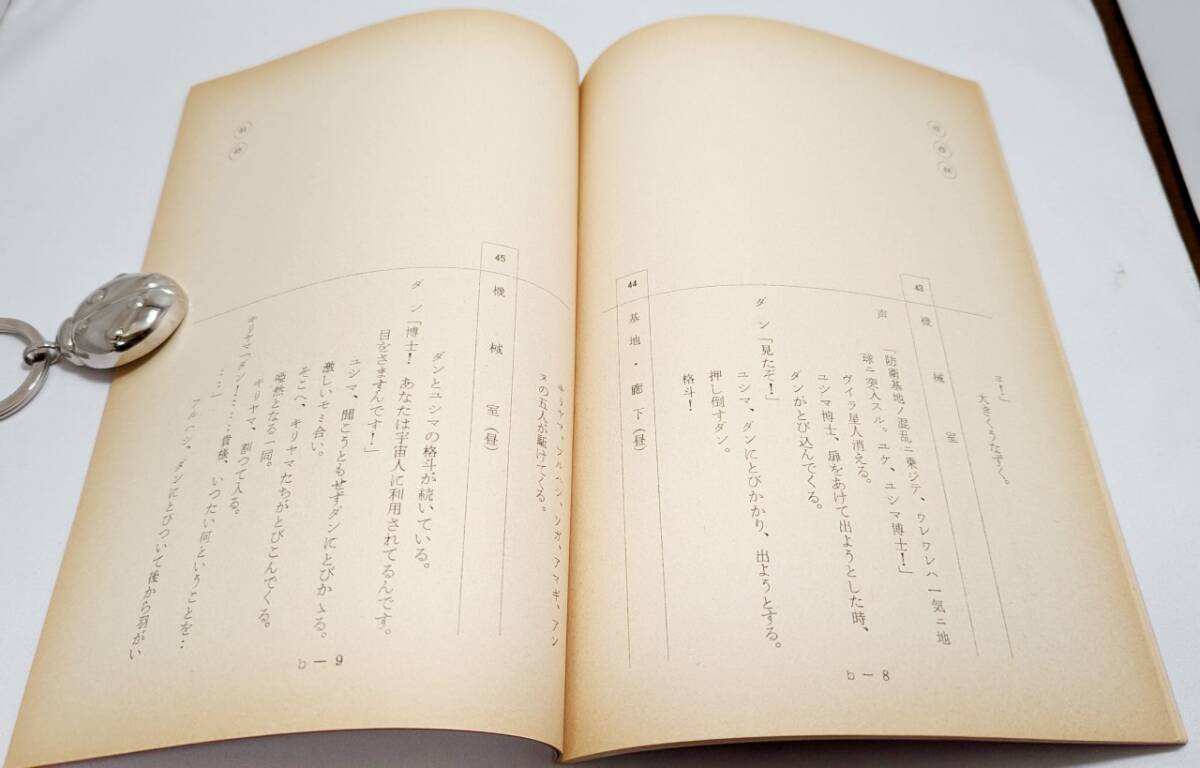 ヨし」
大きくうなずく。
43 機械室
声「防衛基地ノ混乱ニ乗ジテ、ウレワレハ一気ニ地
球ニ突入スル。ユケ、ユシマ博士！」
ヴィラ星人消える。
ユシマ博士、扉をあけて出ようとした時、
ダンがとび込んでくる。
ダン「見たぞ！」
ユシマ、ダンにとびかかり、出ようとする。
押し倒すダン。
格斗！
44 基地・廊下（昼）
b－8
キリヤマ、フルハシ、ソガ、アマギ、アン
ヌの五人が駈けてくる。
45 機械室（昼）
ダンとユシマの格斗が続いている。
ダン「博士！　あなたは宇宙人に利用されてるんです。
目をさますんです！」
ユシマ、聞こうともせずダンにとびかゝる。
激しいモミ合い。
そこへ、キリヤマたちがとびこんでくる。
唖然となる一同。
キリヤマ、割って入る。
キリヤマ「ダン！……貴様、いったい何ということを…
…」
フルハシ、ダンにとびついて後から羽がい
b－9